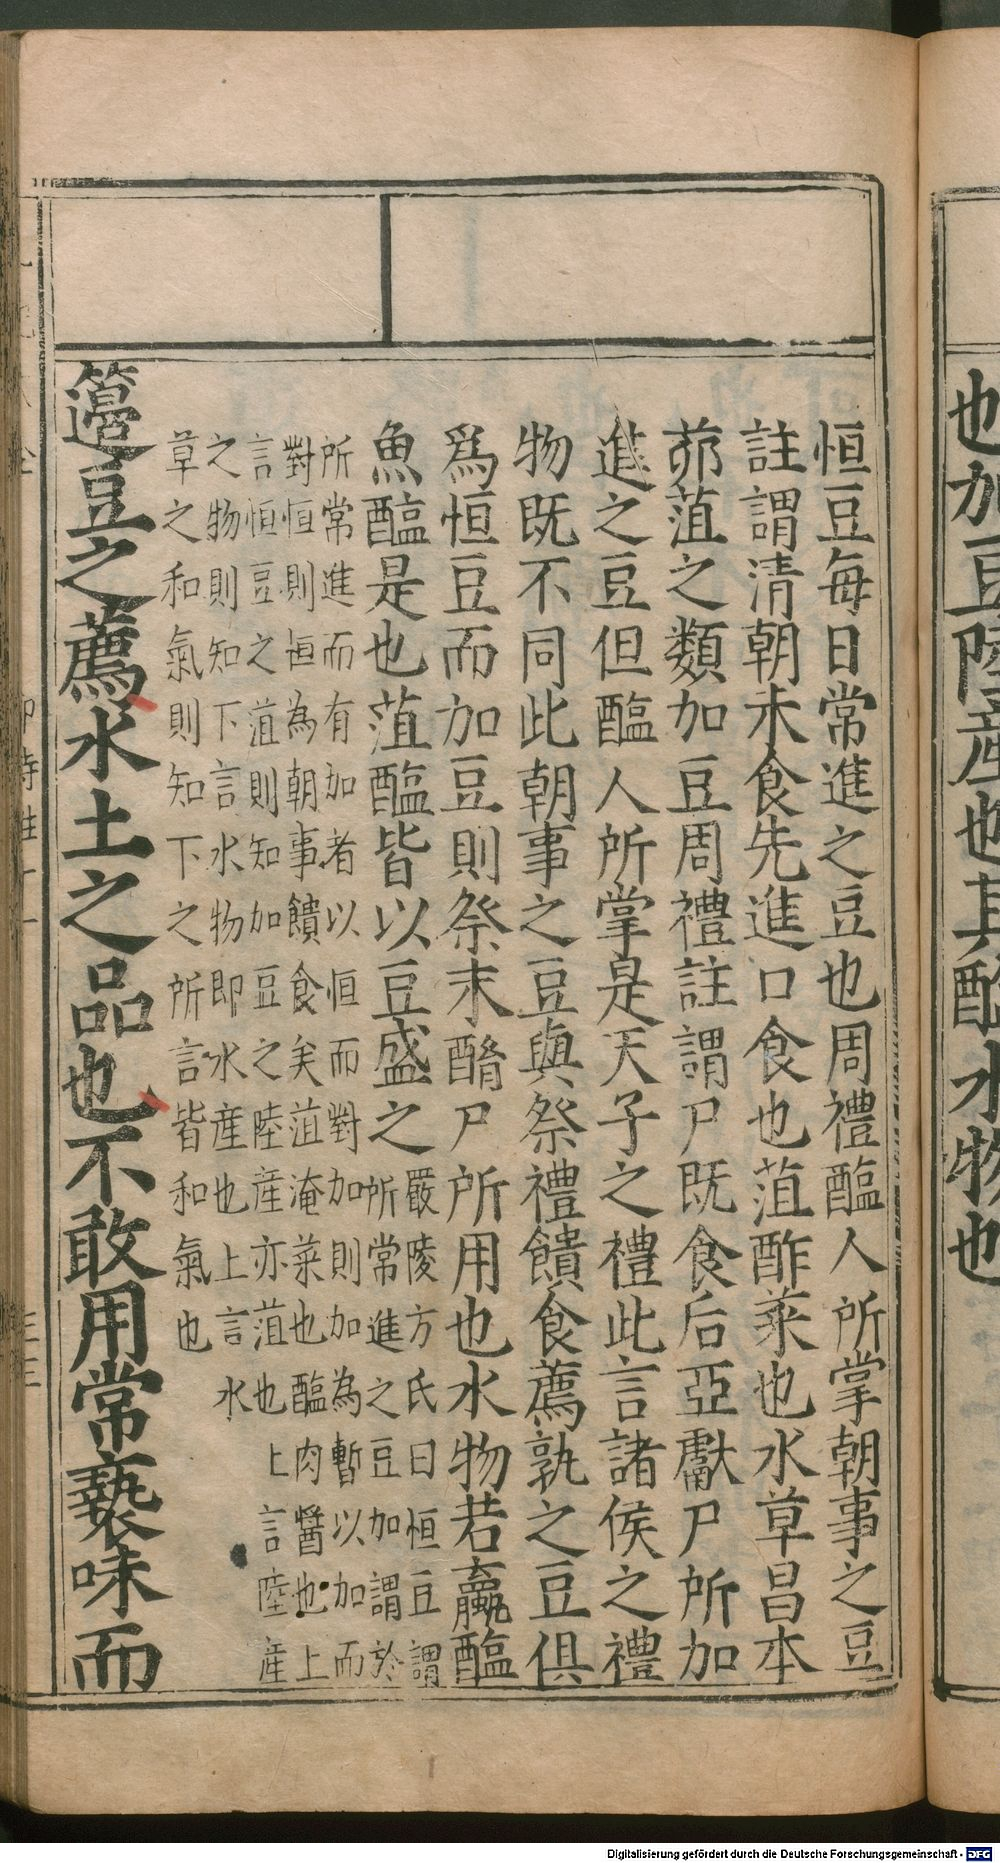 也加豆陸産也其醢水物也
恒豆每日常進之豆也周禮醢人所掌朝事之豆
註謂清朝未食先進口食也菹酢菜也水草昌本
茆菹之類加豆周禮註謂尸既食后亞獻尸所加
進之豆但醢人所掌是天子之禮此言諸侯之禮
物既不同此朝事之豆與祭禮饋食薦孰之豆俱
爲恒豆而加豆則祭末酳尸所用也水物若蠃醢
魚醢是也菹醢皆以豆盛之
嚴陵方氏曰恒豆謂
所常進之豆加謂於
所常進而有加者以恒而對加則加為暫以加而
對恒則恒為朝事饋食矣菹淹菜也醢肉醬也上
言恒豆之菹則知加豆之陸産亦菹也上言陸産
之物則知下言水物即水産也上言水
草之和氣則知下之所言皆和氣也
籩豆之薦水土之品也不敢用常褻味而
Digitalisierung gefördert durch die Deutsche Forschungsgemeinschaft - DFG